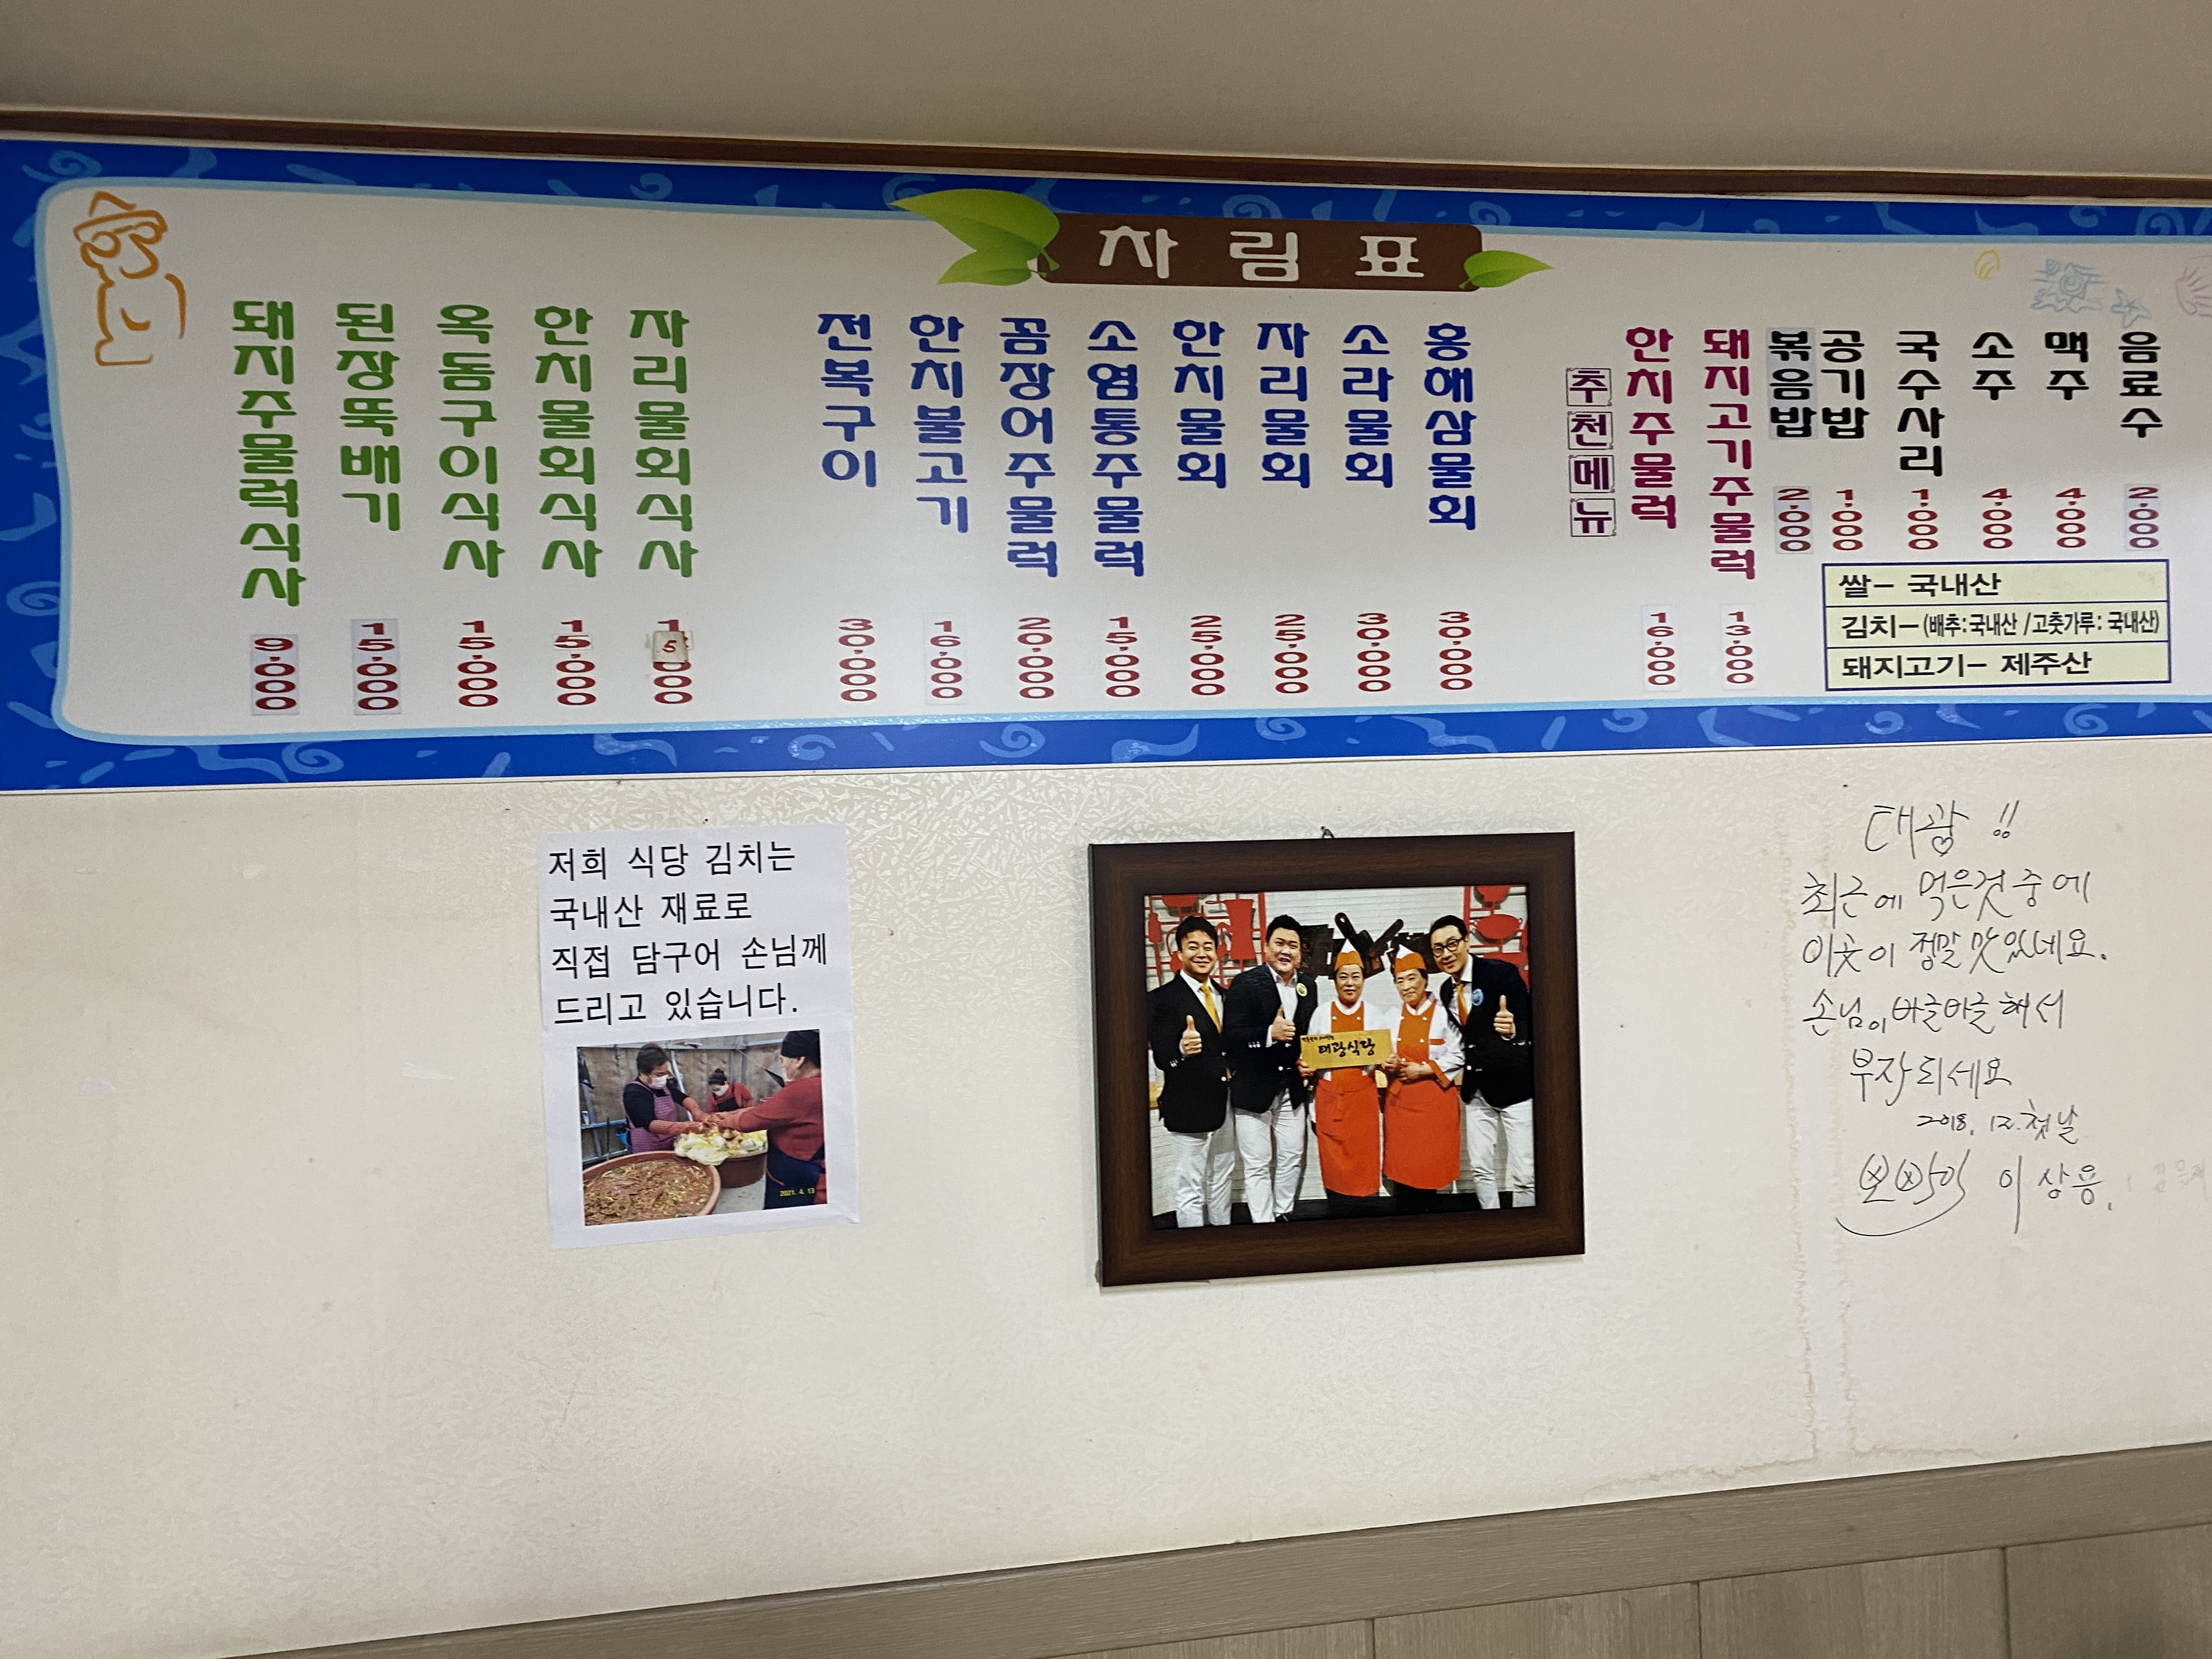 차림표
돼지주물럭식사 9,000
된장뚝배기 15,000
옥돔구이식사 15,000
한치물회식사 15,000
자리물회식사 15,000
전복구이 30,000
한치불고기 16,000
꼼장어주물럭 20,000
소염통주물럭 15,000
한치물회 25,000
자리물회 25,000
소라물회 30,000
홍해삼물회 30,000
추천메뉴
한치주물럭 16,000
돼지고기주물럭 13,000
볶음밥 2,000
공기밥 1,000
국수사리 1,000
소주 4,000
맥주 4,000
음료수 2,000
쌀- 국내산
김치-(배추:국내산/고춧가루: 국내산)
돼지고기- 제주산
저희 식당 김치는
국내산 재료로
직접 담구어 손님께
드리고 있습니다.
2021. 4. 13
대광식당
대광 !!
최근에 먹은것 중에
이곳이 정말 맛있네요.
손님이 바글바글해서
부자되세요
2018. 12. 첫날
뽀빠이 이상용.